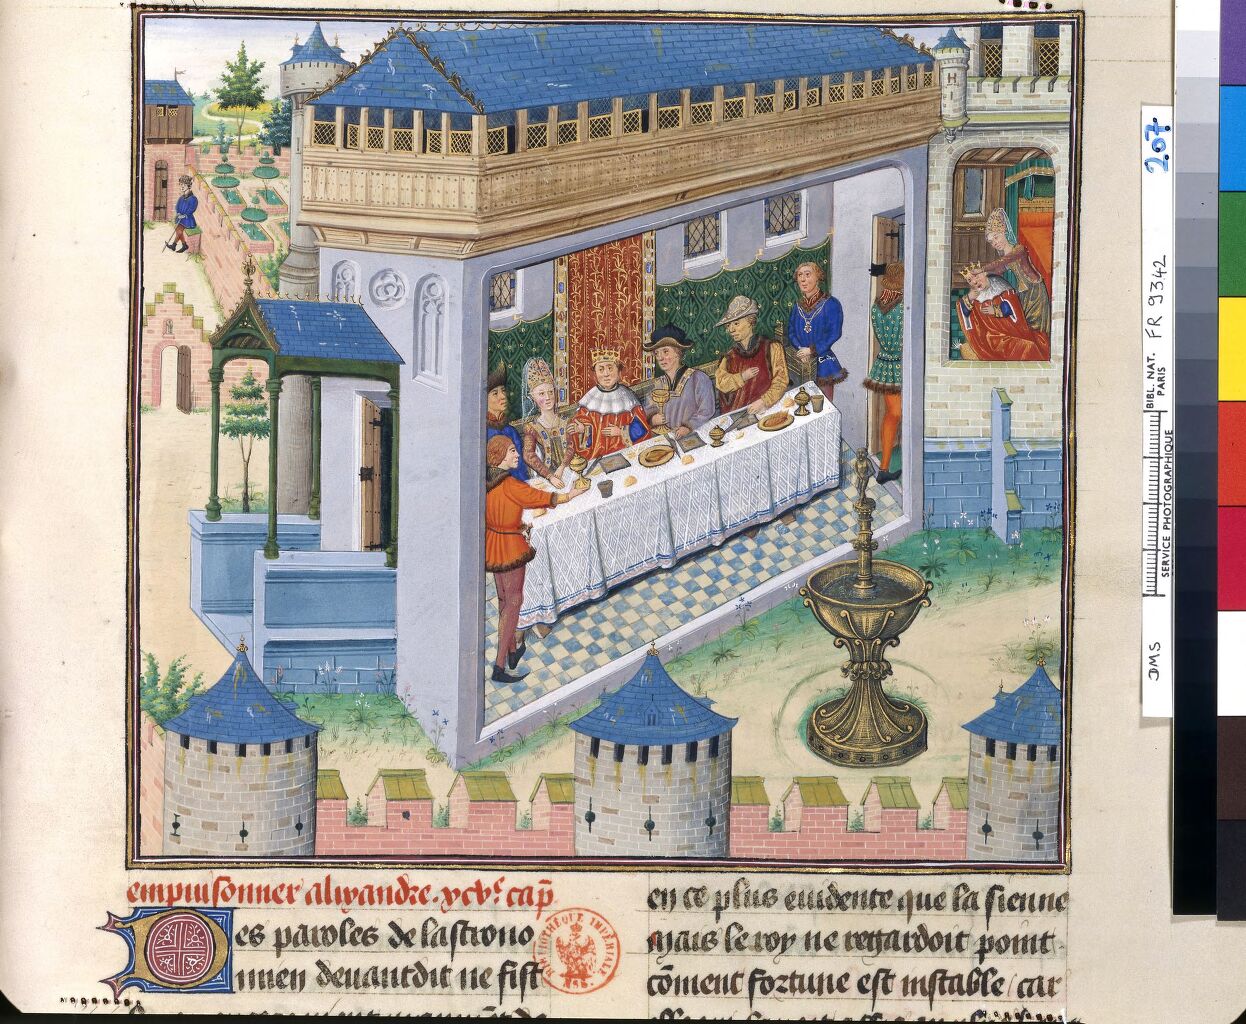 empuisonner alixandre. xcve. cap̃
Des paroles de lastrono
mien deuantdit ne fist
en ce plus euidente que la sienne
mais le roy ne regardoit point
cõment fortune est instable / car
BIBLIOTHÈQUE IMPÉRIALE
207
BIBL. NAT. PARIS FR 9342
SERVICE PHOTOGRAPHIQUE
DMS